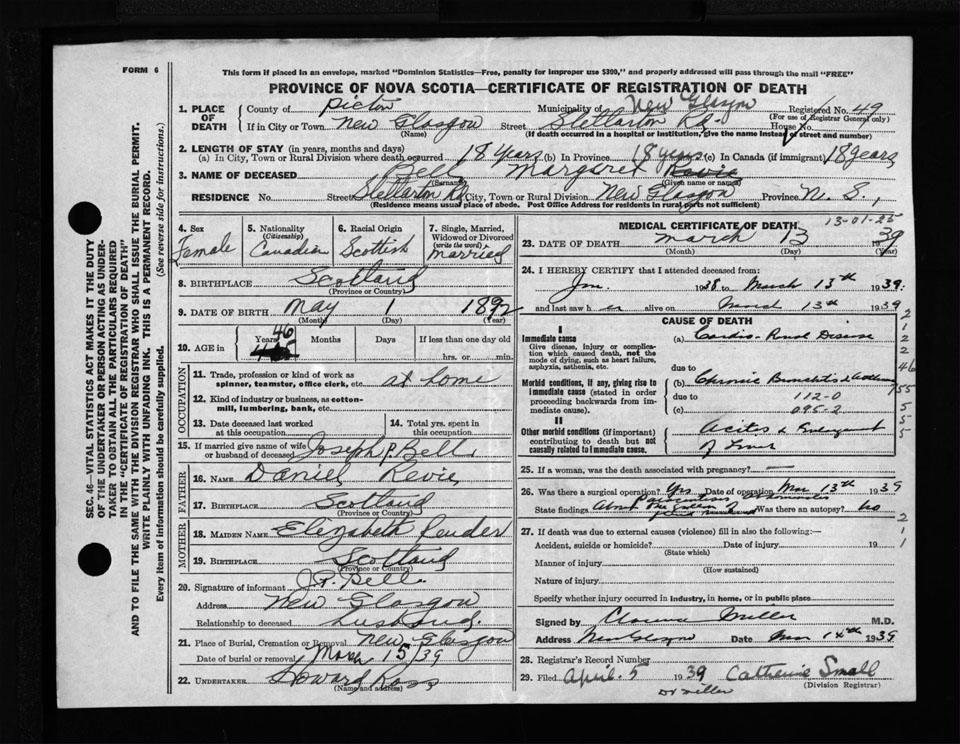 FORM 6
This form if placed in an envelope, marked "Dominion Statistics—Free, penalty for improper use $300," and properly addressed will pass through the mail "FREE"
PROVINCE OF NOVA SCOTIA—CERTIFICATE OF REGISTRATION OF DEATH
1. PLACE OF DEATH County of Pictou Municipality of New Glasgow Registered No. 49
(For use of Registrar General only)
If in City or Town New Glasgow Street Stellarton Rd. House No.
(Name) (If death occurred in a hospital or institution, give the name instead of street and number)
2. LENGTH OF STAY (in years, months and days)
(a) In City, Town or Rural Division where death occurred 18 years (b) In Province 18 years (c) In Canada (if immigrant) 18 years
3. NAME OF DECEASED Bell Margaret Revie
(Surname) (Given name or names)
RESIDENCE No. Street Stellarton Rd City, Town or Rural Division New Glasgow Province N. S.,
(Residence means usual place of abode. Post Office Address for residents in rural parts not sufficient)
4. Sex
Female
5. Nationality
(Citizenship)
Canadian
6. Racial Origin
Scottish
7. Single, Married, Widowed or Divorced
(write the word)
Married
8. BIRTHPLACE Scotland
(Province or Country)
9. DATE OF BIRTH May 1 1892
(Month) (Year)
10. AGE in Years 46 Months Days If less than one day old
hrs. or min.
OCCUPATION
11. Trade, profession or kind of work as spinner, teamster, office clerk, etc. at home
12. Kind of industry or business, as cotton-mill, lumbering, bank, etc.
13. Date deceased last worked at this occupation
14. Total yrs. spent in this occupation
15. If married give name of wife or husband of deceased Joseph P. Bell
FATHER
16. NAME Daniel Revie
17. BIRTHPLACE Scotland
(Province or Country)
MOTHER
18. MAIDEN NAME Elizabeth
19. BIRTHPLACE Scotland
(Province or Country)
20. Signature of informant J. P. Bell
Address New Glasgow
Relationship to deceased Husband
21. Place of Burial, Cremation or Removal New Glasgow
Date of burial or removal March 15/39
22. UNDERTAKER Howard Ross
(Name and address)
MEDICAL CERTIFICATE OF DEATH
13-01-25
23. DATE OF DEATH March 13 1939
(Month) (Day) (Year)
24. I HEREBY CERTIFY that I attended deceased from:
Jan. 1938. to March 13th 1939.
and last saw her alive on March 13th 1939
CAUSE OF DEATH
I
Immediate cause
Give disease, injury or complication which caused death, not the mode of dying, such as heart failure, asphyxia, asthenia, etc.
(a) Cardio-Renal Disease
due to
Morbid conditions, if any, giving rise to immediate cause (stated in order proceeding backwards from immediate cause).
(b) Chronic Bronchitis & asthma
due to 112-0
(c) 095-2
II
Other morbid conditions (if important) contributing to death but not causally related to immediate cause.
Acites & Enlargement
of Liver
2
1
2
2
46
755
5
5
5
25. If a woman, was the death associated with pregnancy? —
26. Was there a surgical operation? Yes Date of operation Mar 13th 1939
State findings Was there an autopsy? No
2
1
1
27. If death was due to external causes (violence) fill in also the following:—
Accident, suicide or homicide? Date of injury 19
(State which)
Manner of injury
(How sustained)
Nature of injury
Specify whether injury occurred in industry, in home, or in public place
Signed by Clarence Miller M.D.
Address New Glasgow Date Mar 14th 1939
28. Registrar's Record Number
29. Filed April 5 1939 Catherine Small
(Division Registrar)
Dr Miller
SEC. 46—VITAL STATISTICS ACT MAKES IT THE DUTY
OF THE UNDERTAKER OR PERSON ACTING AS UNDER-
TAKER TO OBTAIN ALL THE PARTICULARS REQUIRED
IN THE "CERTIFICATE OF REGISTRATION OF DEATH"
AND TO FILE THE SAME WITH THE DIVISION REGISTRAR WHO SHALL ISSUE THE BURIAL PERMIT.
WRITE PLAINLY WITH UNFADING INK. THIS IS A PERMANENT RECORD.
Every item of information should be carefully supplied. (See reverse side for instructions.)